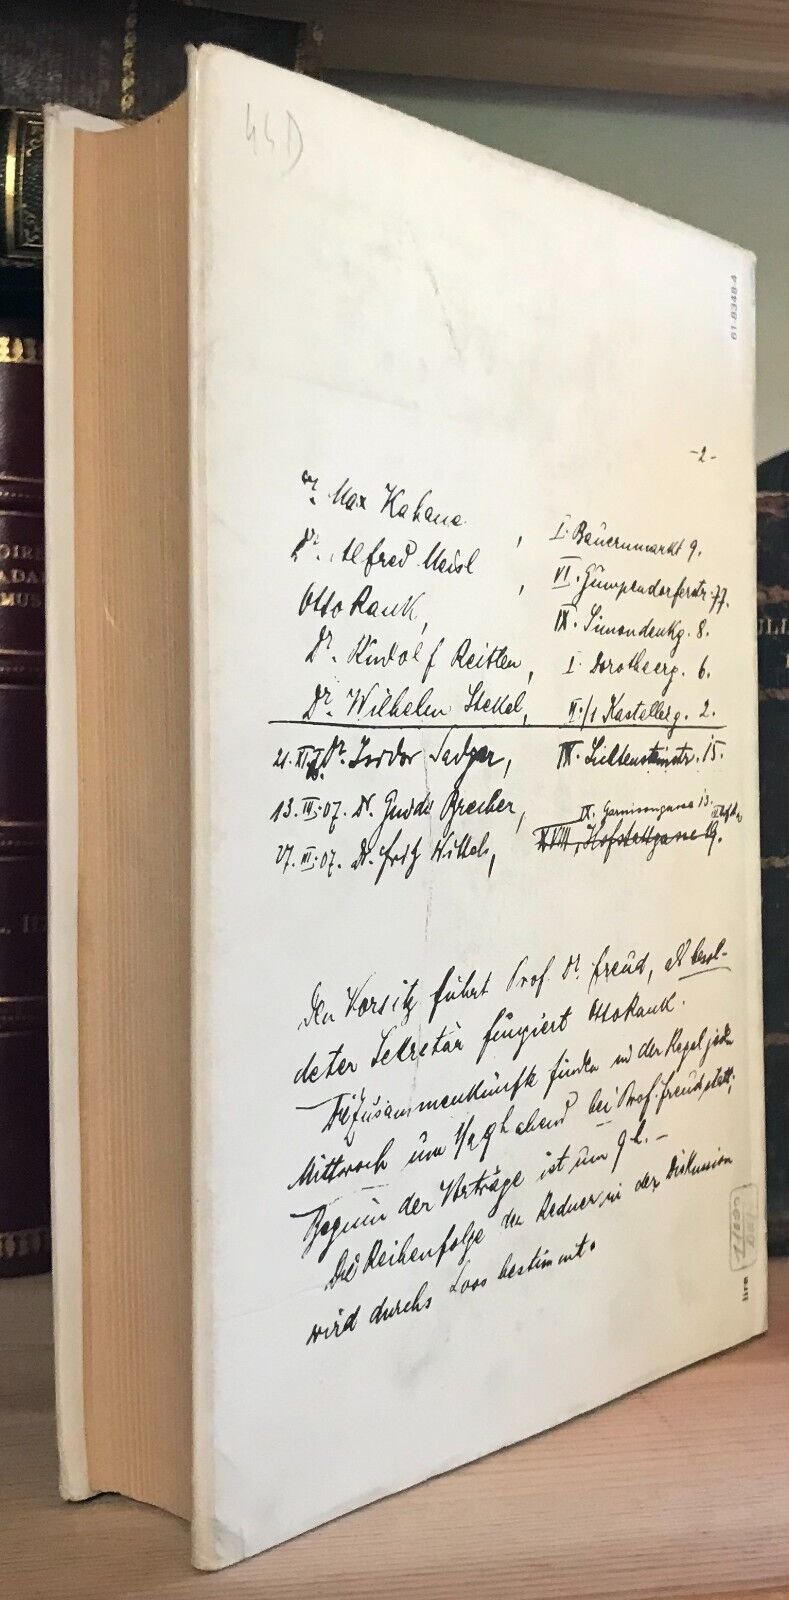 44D
61-8348-4
-2-
Dr. Max Kahane, I. Bauernmarkt 9.
Dr. Alfred Meisl, VI. Gumpendorferstr. 77.
Otto Rank, IX. Simondenkg. 8.
Dr. Rudolf Reitler, I. Dorotheerg. 6.
Dr. Wilhelm Stekel, II./1 Kastellezg. 2.
Dr. Isidor Sadger, IX. Liechtensteinstr. 15.
IX. Garnisongasse 13.
13. III. 07. Dr. Guido Brecher, XVIII, Hofstattgasse 19.
27. III. 07. Dr. Fritz Wittels,
Den Vorsitz führt Prof. Dr. Freud, als besol-
deter Sekretär fungiert Otto Rank.
Die Zusammenkünfte finden in der Regel jeden
Mittwoch um 1/2 9 h abend bei Prof. Freud statt;
Beginn der Vorträge ist um 9 h. —
Die Reihenfolge der Redner in der Diskussion
wird durchs Loos bestimmt.
lire